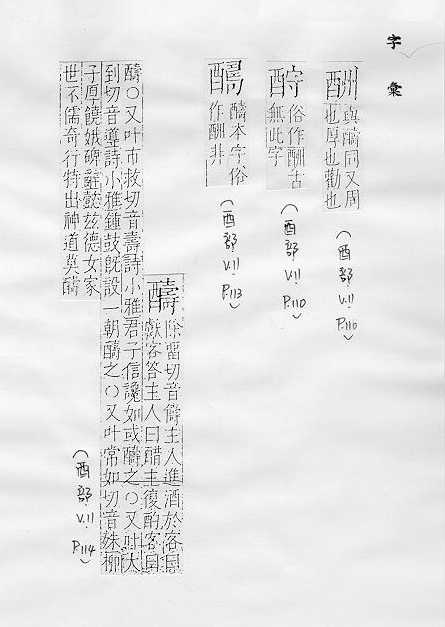 字彙
酬 與醻同又周
也厚也勸也
(酉部 V.11 P.110)
俗作酬古
無此字
(酉部 V.11 P.110)
醻本字俗
作酬非
(酉部 V.11 P.113)
醻 除留切音儔主人進酒於客曰
獻客答主人曰醋主復酌客曰
醻○又叶市救切音壽詩小雅君子信讒如或醻之○又叶大
到切音導詩小雅鍾鼓旣設一朝醻之○又叶常如切音殊柳
子厚饒娥碑懿玆德女家
世不儒奇行特出神道莫醻
(酉部 V.11 P.114)